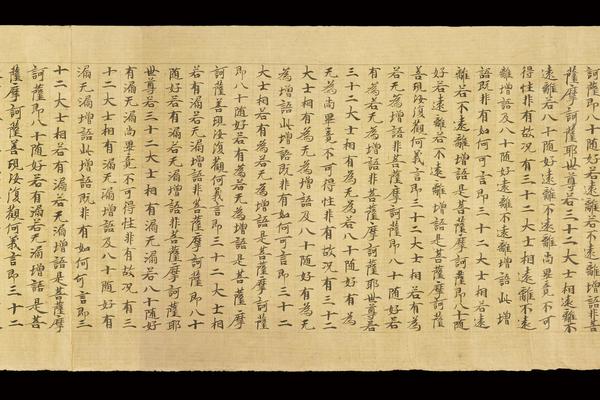 訶薩即八十隨好若遠離若不遠離增語非菩
薩摩訶薩耶世尊若三十二大士相遠離不
遠離若八十隨好遠離不遠離尚畢竟不可
得性非有故況有三十二大士相遠離不遠
離增語及八十隨好遠離不遠離增語此增
語既非有如何可言即三十二大士相若遠
離若不遠離增語是菩薩摩訶薩即八十隨
好若遠離若不遠離增語是菩薩摩訶薩
善現汝復觀何義言即三十二大士相若有為
若无為增語非菩薩摩訶薩即八十隨好若
有為若无為增語非菩薩摩訶薩耶世尊若
三十二大士相有為无為若八十隨好有為
无為尚畢竟不可得性非有故況有三十二
大士相有為无為增語及八十隨好有為无
為增語此增語既非有如何可言即三十二
大士相若有為若无為增語是菩薩摩訶薩
即八十隨好若有為若无為增語是菩薩摩
訶薩善現汝復觀何義言即三十二大士相
若有漏若无漏增語非菩薩摩訶薩即八十
隨好若有漏若无漏增語非菩薩摩訶薩耶
世尊若三十二大士相有漏无漏若八十隨好
有漏无漏尚畢竟不可得性非有故況有三
十二大士相有漏无漏增語及八十隨好有
漏无漏增語此增語既非有如何可言即三
十二大士相若有漏若无漏增語是菩薩摩
訶薩即八十隨好若有漏若无漏增語是菩
薩摩訶薩善現汝復觀何義言即三十二